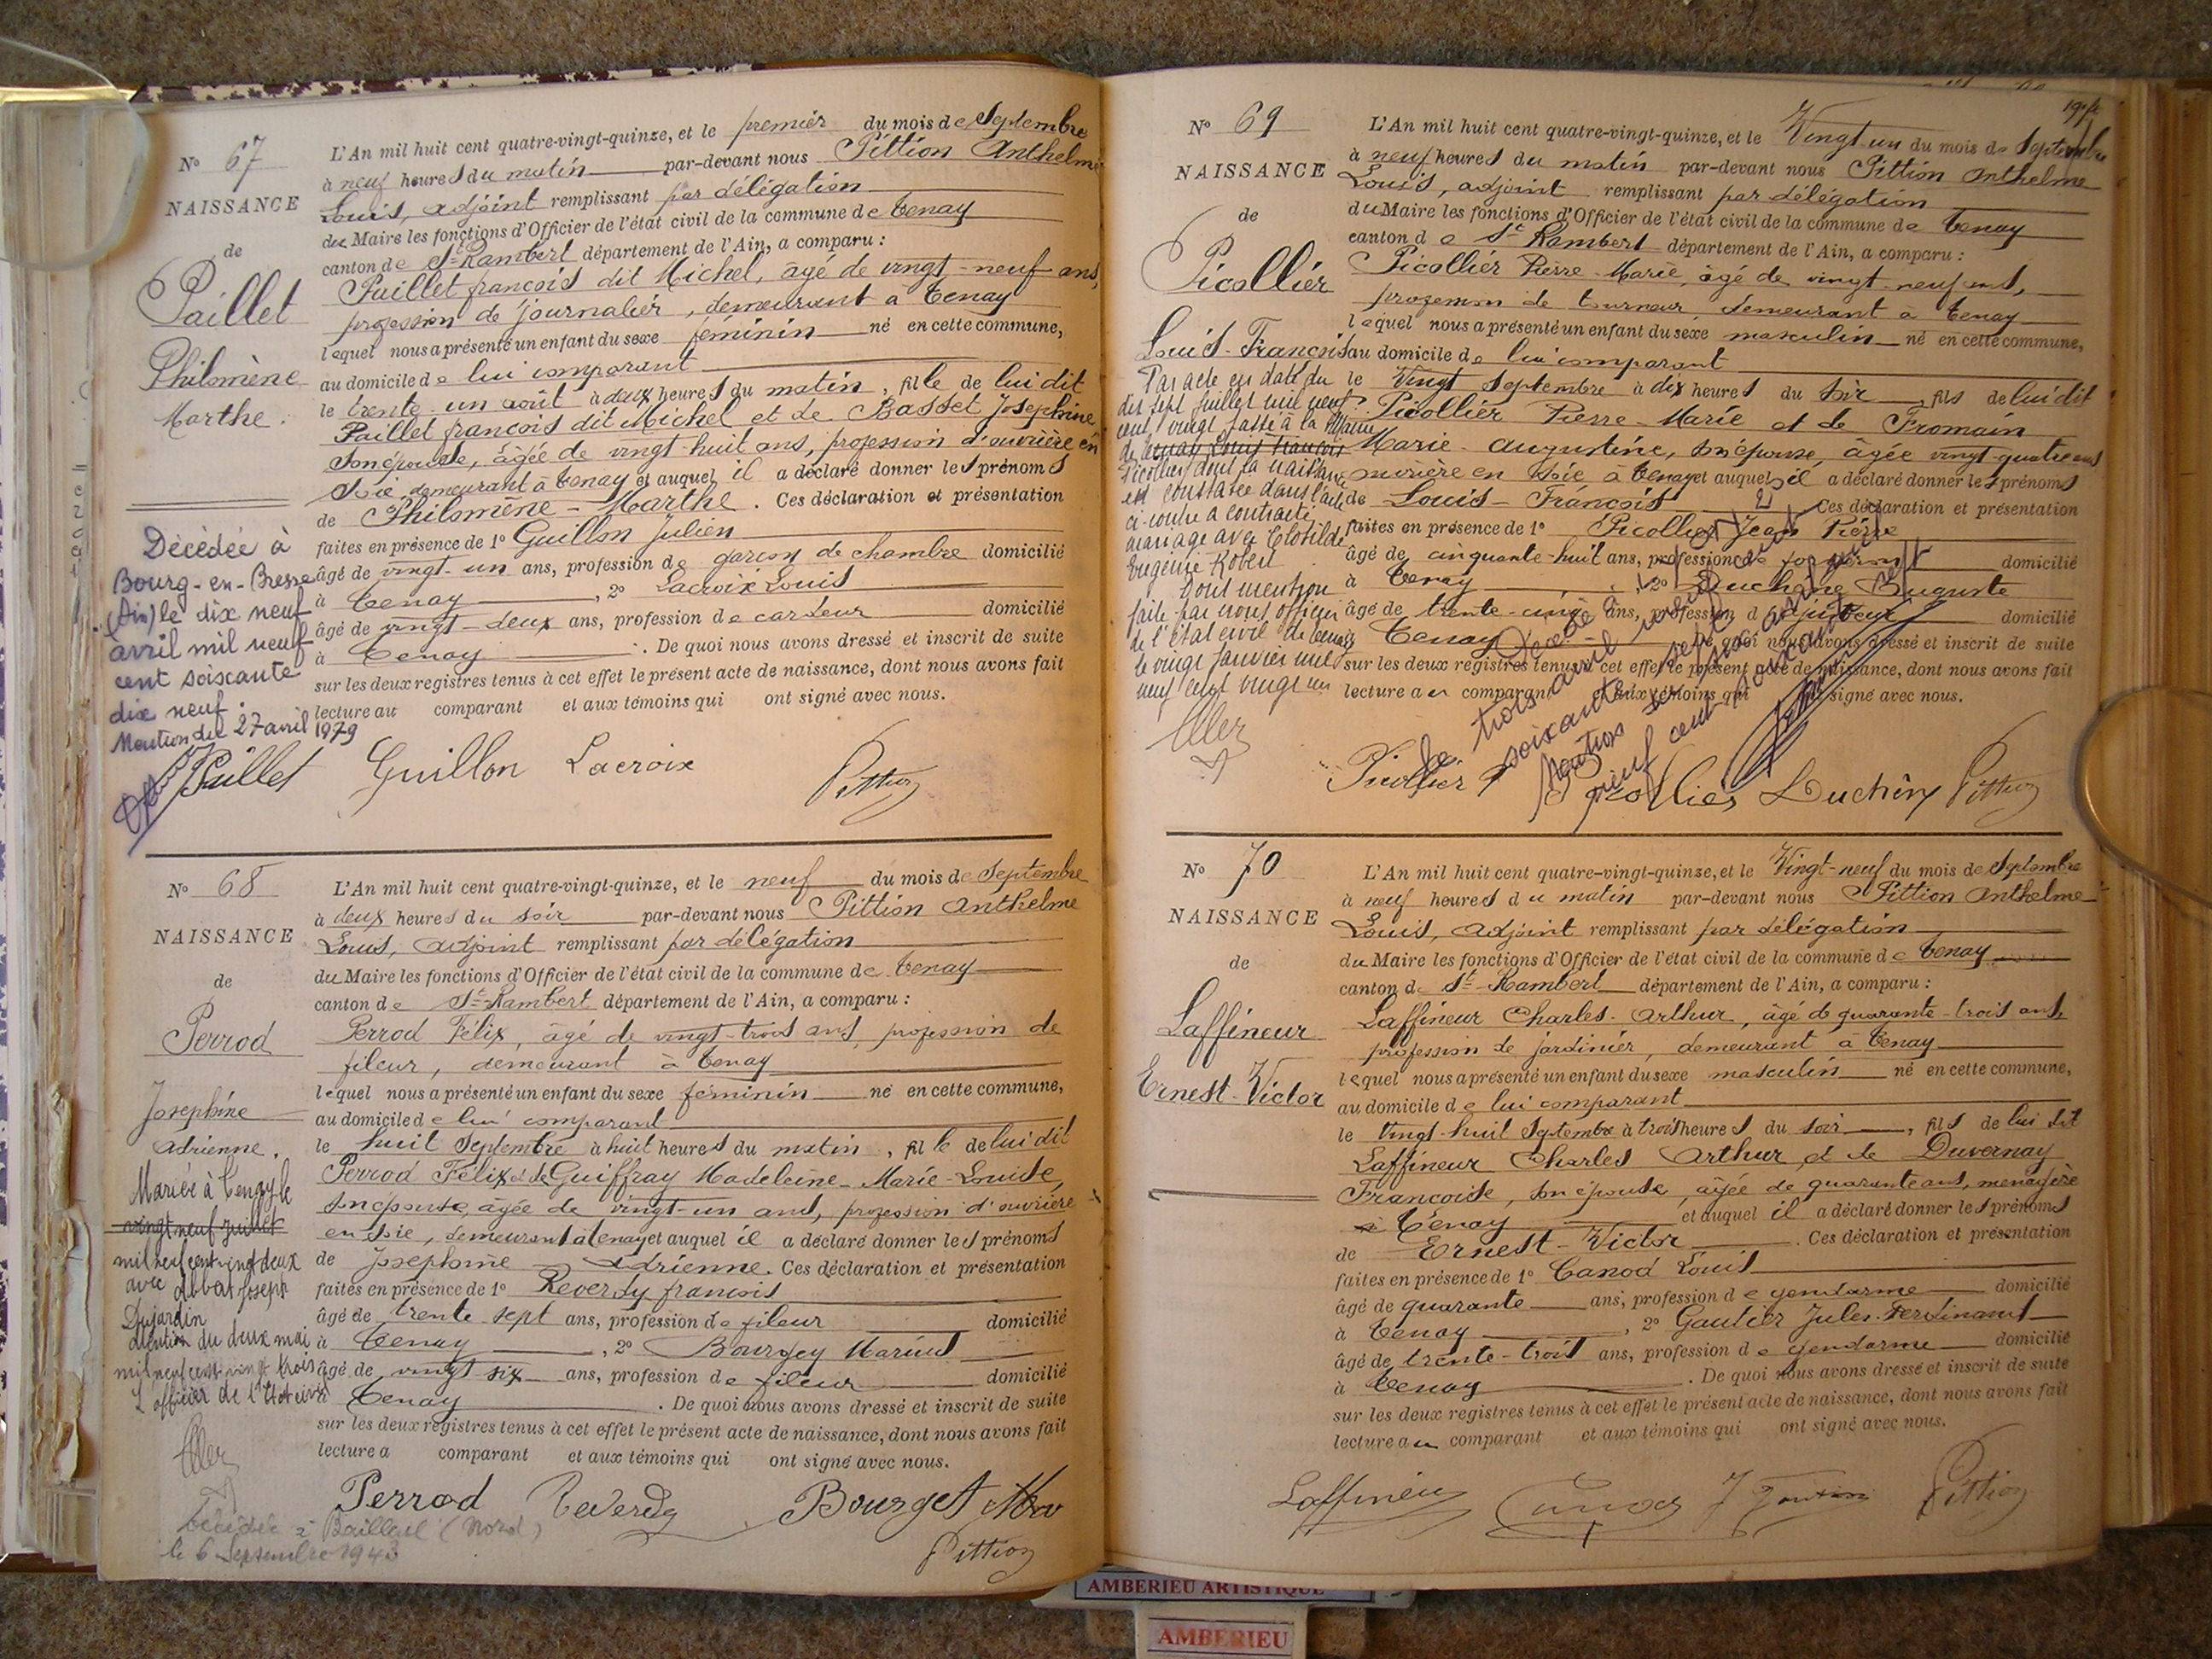 N° 67
NAISSANCE
de
Paillet
Philomène
Marthe.
Décédée à
Bourg-en-Bresse
(Ain) le dix neuf
avril mil neuf
cent soixante
dix neuf.
Mention du 27 avril 1979
L'An mil huit cent quatre-vingt-quinze, et le premier du mois de Septembre
à neuf heures du matin par-devant nous Pittion Anthelme
Louis, adjoint remplissant par délégation
du Maire les fonctions d'Officier de l'état civil de la commune de Tenay
canton de St Rambert département de l'Ain, a comparu :
Paillet françois dit Michel, âgé de vingt-neuf ans,
profession de journalier, demeurant à Tenay
lequel nous a présenté un enfant du sexe féminin né en cette commune,
au domicile de lui comparant
le trente-un août à deux heures du matin, fille de lui dit
Paillet françois dit Michel et de Basset Josephine
son épouse, âgée de vingt-huit ans, profession d'ouvrière en
soie, demeurant à Tenay et auquel il a déclaré donner les prénoms
de Philomène-Marthe. Ces déclaration et présentation
faites en présence de 1° Guillon Julien
âgé de vingt-un ans, profession de garçon de chambre domicilié
à Tenay, 2° Lacroix Louis
âgé de vingt-deux ans, profession de cardeur domicilié
à Tenay. De quoi nous avons dressé et inscrit de suite
sur les deux registres tenus à cet effet le présent acte de naissance, dont nous avons fait
lecture au comparant et aux témoins qui ont signé avec nous.
Paillet Guillon Lacroix Pittion
N° 68
NAISSANCE
de
Perrod
Josephine
Adrienne.
Mariée à Tenay le
vingt neuf juillet
mil neuf cent vingt deux
avec Abbat Joseph
Dujardin
Mention du deux mai
mil neuf cent vingt trois
L'officier de l'Etat civil
Décédée à Bailleul (Nord)
le 6 Septembre 1943
L'An mil huit cent quatre-vingt-quinze, et le neuf du mois de Septembre
à deux heures du soir par-devant nous Pittion Anthelme
Louis, adjoint remplissant par délégation
du Maire les fonctions d'Officier de l'état civil de la commune de Tenay
canton de St-Rambert département de l'Ain, a comparu :
Perrod Félix, âgé de vingt-trois ans, profession de
fileur, demeurant à Tenay
lequel nous a présenté un enfant du sexe féminin né en cette commune,
au domicile de lui comparant
le huit Septembre à huit heures du matin, fille de lui dit
Perrod Félix et de Guiffray Madeleine-Marie-Louise,
son épouse, âgée de vingt-un ans, profession d'ouvrière
en soie, demeurant à Tenay et auquel il a déclaré donner les prénoms
de Josephine Adrienne. Ces déclaration et présentation
faites en présence de 1° Reverdy françois
âgé de trente sept ans, profession de fileur domicilié
à Tenay, 2° Bourgey Marius
âgé de vingt six ans, profession de fileur domicilié
à Tenay. De quoi nous avons dressé et inscrit de suite
sur les deux registres tenus à cet effet le présent acte de naissance, dont nous avons fait
lecture a comparant et aux témoins qui ont signé avec nous.
Perrod Reverdy Bourget
Pittion
N° 69
NAISSANCE
de
Picollier
Louis-François
Par acte en date du
dix sept juillet mil neuf
cent vingt passé à la Mairie
de Tenay Louis François
Picollier dont la naissance
est constatée dans l'acte
ci-contre a contracté
mariage avec Clotilde
Eugénie Robert
Dont mention
faite par nous officier
de l'état civil de Tenay
le vingt janvier mil
neuf cent vingt un
L'An mil huit cent quatre-vingt-quinze, et le Vingt un du mois de Septembre
à neuf heures du matin par-devant nous Pittion Anthelme
Louis, adjoint remplissant par délégation
du Maire les fonctions d'Officier de l'état civil de la commune de Tenay
canton de St Rambert département de l'Ain, a comparu :
Picollier Pierre-Marie, âgé de vingt-neuf ans,
profession de tourneur, demeurant à Tenay
lequel nous a présenté un enfant du sexe masculin né en cette commune,
au domicile de lui comparant
le Vingt Septembre à dix heures du soir, fils de lui dit
Picollier Pierre-Marie et de Fromain
Marie-Augustine, son épouse, âgée vingt-quatre ans
ouvrière en soie à Tenay et auquel il a déclaré donner les prénoms
de Louis-François Ces déclaration et présentation
faites en présence de 1° Picollier Jean Pierre
âgé de cinquante-huit ans, profession de domicilié
à Tenay, 2° Duchêne Auguste
âgé de trente-cinq ans, profession d'ajusteur domicilié
à Tenay De quoi nous avons dressé et inscrit de suite
sur les deux registres tenus à cet effet le présent acte de naissance, dont nous avons fait
lecture au comparant et aux témoins qui signé avec nous.
Décédé à
le trois avril
soixante sept
Mention
neuf cent
Picollier Picollier Duchêne Pittion
N° 70
NAISSANCE
de
Laffineur
Ernest-Victor
L'An mil huit cent quatre-vingt-quinze, et le Vingt-neuf du mois de Septembre
à neuf heures du matin par-devant nous Pittion Anthelme
Louis, adjoint remplissant par délégation
du Maire les fonctions d'Officier de l'état civil de la commune de Tenay
canton de St-Rambert département de l'Ain, a comparu :
Laffineur Charles-Arthur, âgé de quarante-trois ans,
profession de jardinier, demeurant à Tenay
lequel nous a présenté un enfant du sexe masculin né en cette commune,
au domicile de lui comparant
le Vingt-huit Septembre à trois heures du soir, fils de lui dit
Laffineur Charles Arthur et de Duvernay
Françoise, son épouse, âgée de quarante ans, ménagère
à Tenay et auquel il a déclaré donner les prénoms
de Ernest-Victor. Ces déclaration et présentation
faites en présence de 1° Canod Louis
âgé de quarante ans, profession de gendarme domicilié
à Tenay, 2° Gautier Jules-Ferdinand
âgé de trente-trois ans, profession de gendarme domicilié
à Tenay. De quoi nous avons dressé et inscrit de suite
sur les deux registres tenus à cet effet le présent acte de naissance, dont nous avons fait
lecture au comparant et aux témoins qui ont signé avec nous.
Laffineur Canod Pittion
AMBERIEU ARTISTIQUE
AMBERIEU